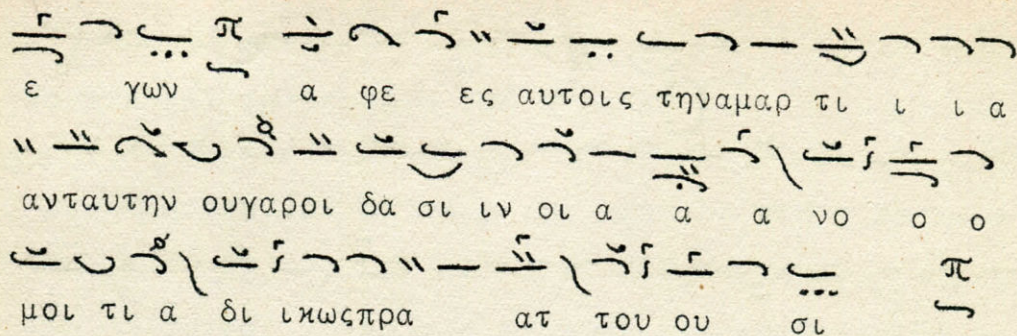 ε γων α φε ες αυτοις τηναμαρ τι ι ι α
ανταυτην ουγαροι δα σι ιν οι α α α νο ο ο
μοι τι α δι ικωςπρα ατ του ου σι